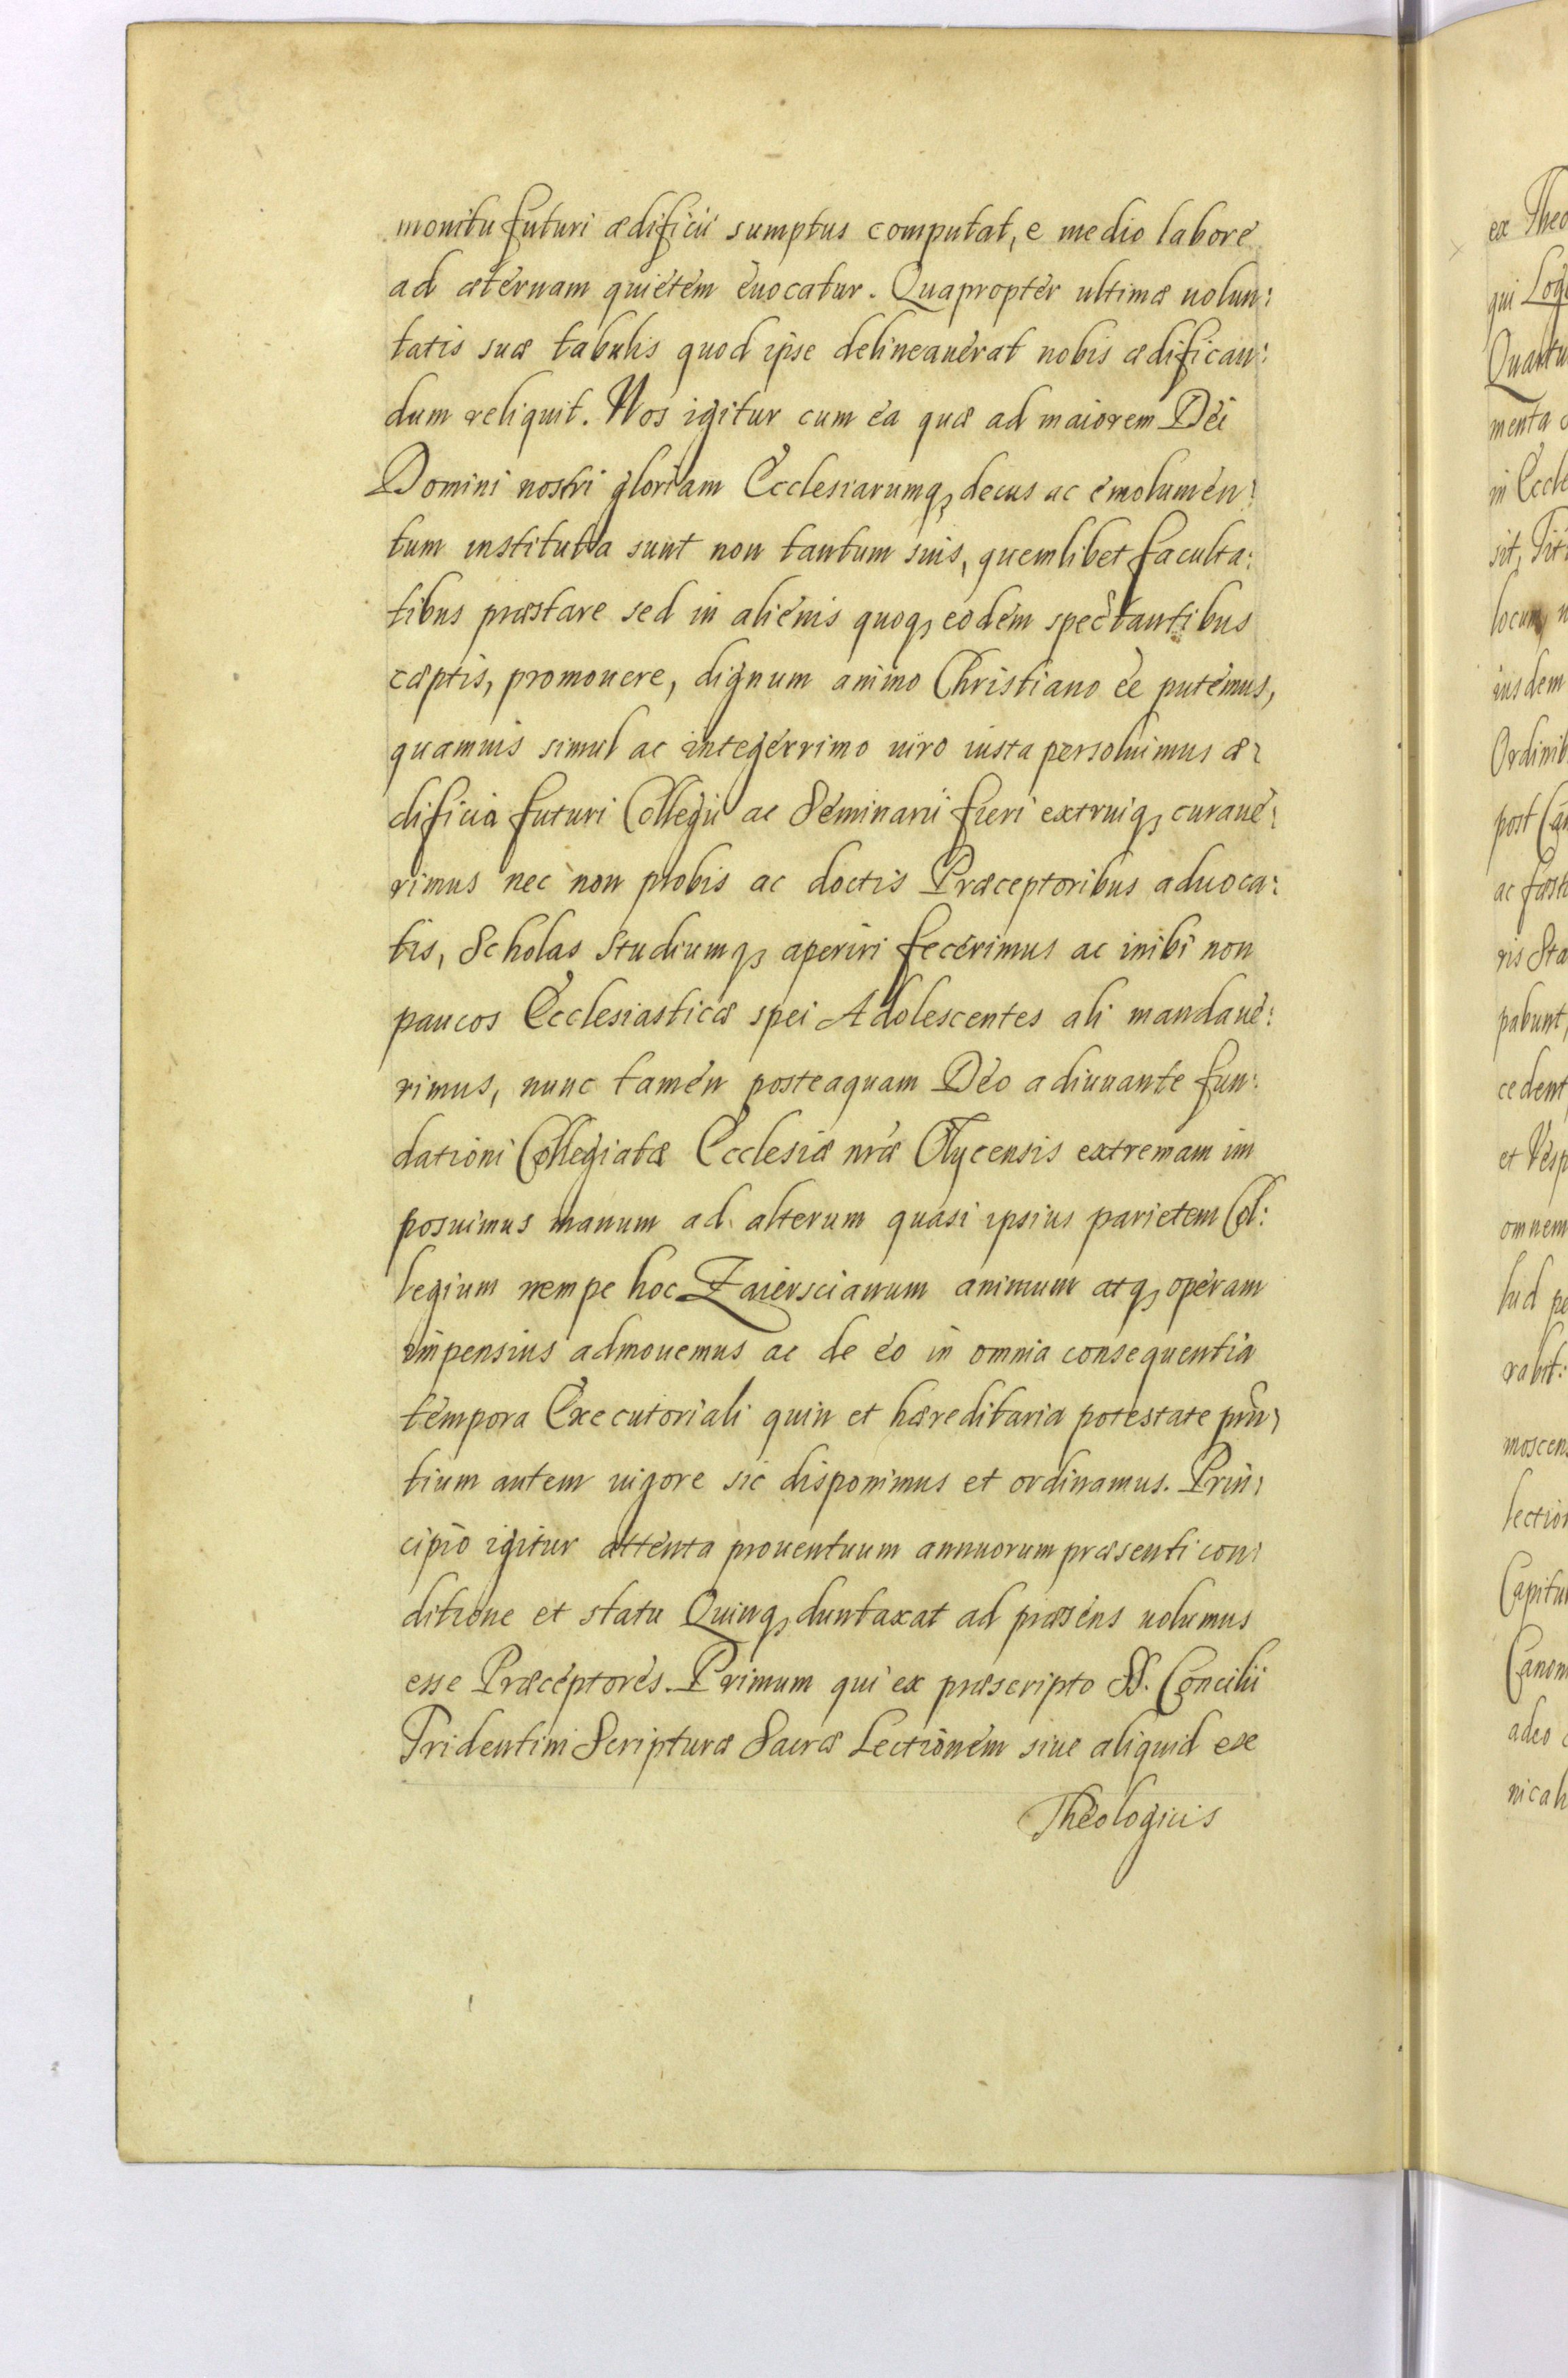 monitu futuri ædificii sumptus computat, e medio labore
ad æternam quietem euocatur. Quapropter ultimæ uolun:
tatis suæ tabulis quod ipse delineauerat nobis ædifican:
dum reliquit. Nos igitur cum ea quæ ad maiorem Dei
Domini nostri gloriam Ecclesiarumq₃ decus ac emolumen:
tum instituta sunt non tantum suis, quemlibet faculta:
tibus præstare sed in alienis quoq₃ eodem spectantibus
cæptis, promouere, dignum animo Christiano ee putemus,
quamuis simul ac integerrimo uiro iusta persoluimus æ:
dificia futuri Collegii ac Seminarii fieri extruiq₃ curaue:
rimus nec non probis ac doctis Præceptoribus aduoca:
tis, Scholas Studiumq₃ aperiri fecerimus ac inibi non
paucos Ecclesiasticæ spei Adolescentes ali mandaue:
rimus, nunc tamen posteaquam Deo adiuuante fun:
dationi Collegiatæ Ecclesiæ nræ Olycensis extremam im
posuimus manum ad alterum quasi ipsius parietem Col:
legium nempe hoc Zaierscianum animum atq₃ operam
impensius admouemus ac de eo in omnia consequentia
tempora Executoriali quin et hæreditaria potestate prñ:
tium autem uigore sic disponimus et ordinamus. Prin:
cipio igitur attenta prouentuum annuorum præsenti con:
ditione et statu Quinq₃ duntaxat ad præsens uolumus
esse Præceptores. Primum qui ex præscripto SS. Concilii
Tridentini Scripturæ Sacræ Lectionem siue aliquid ex
Theologicis
ex Theo
qui Log
menta
in Eccle
sit,
locum
iusdem
Ordinib
post
ris Sta
pabunt,
cedent
et Vesp
omnem
rabit:
moscens
lection
Capitu
Canon
adeo